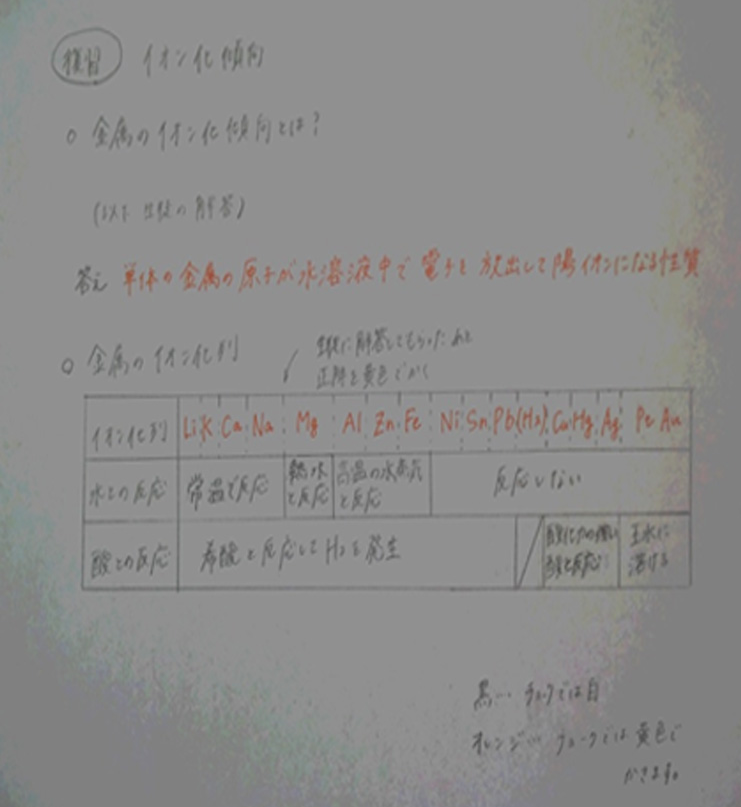 復習 イオン化傾向
○ 金属のイオン化傾向とは?
(以下 生徒の解答)
答え 単体の金属の原子が水溶液中で電子を放出して陽イオンになる性質
○ 金属のイオン化列
生徒に解答してもらったあと
正解を黄色でかく
イオン化列 Li K Ca Na Mg Al Zn Fe Ni Sn Pb (H2) Cu Hg Ag Pt Au
水との反応 常温で反応 熱水と反応 高温の水蒸気と反応 反応しない
酸との反応 希酸と反応してH2を発生 酸化力の強い酸と反応 王水に溶ける
黒… チョークでは白
オレンジ… チョークでは黄色で
かきます。